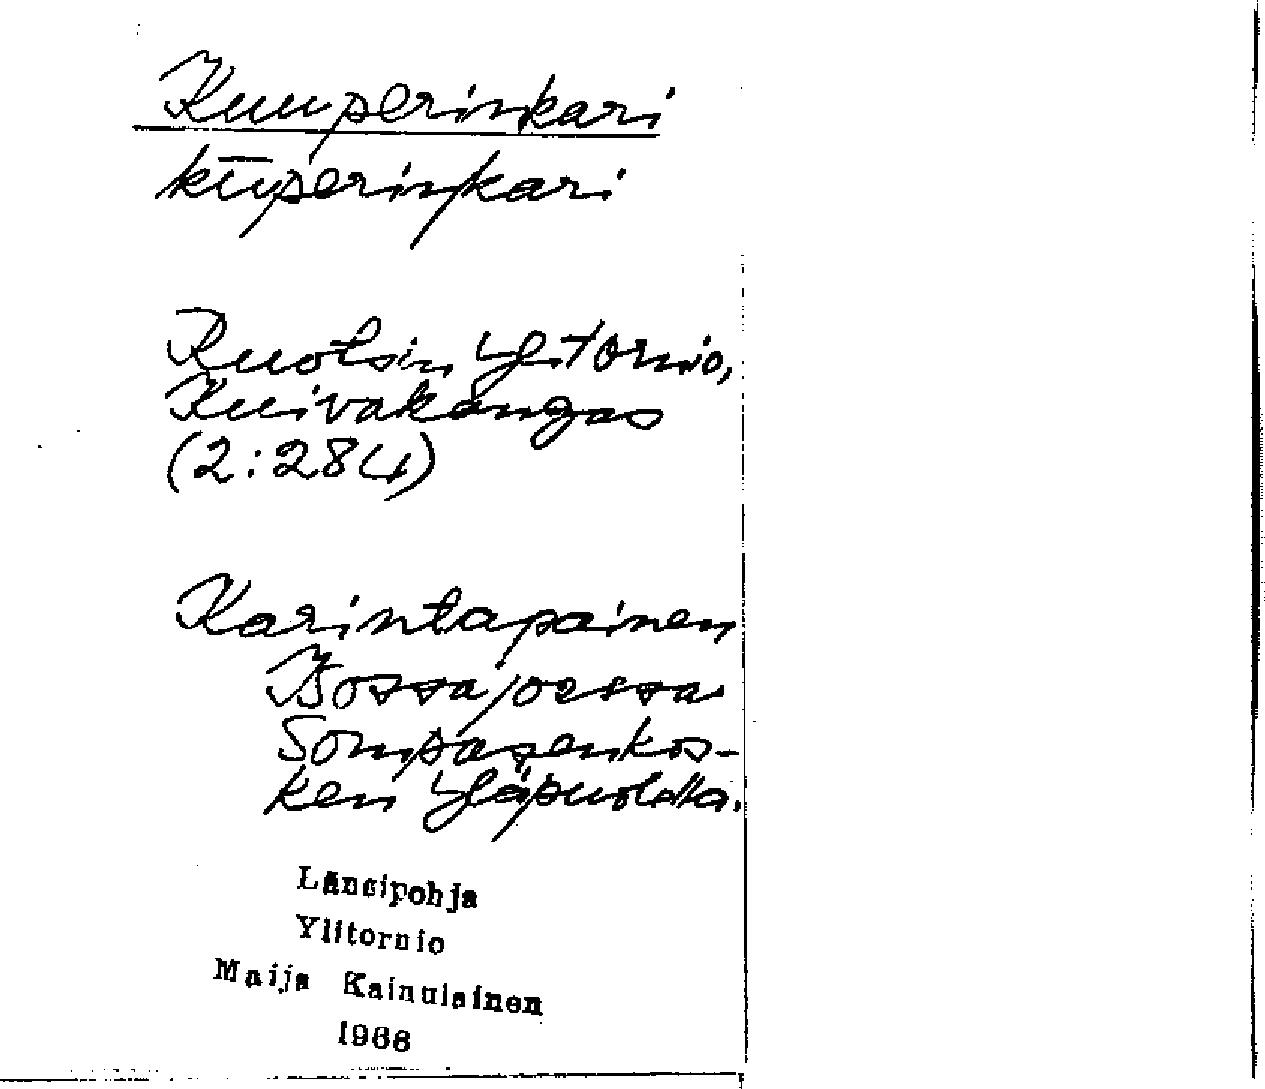 Kuuperinkari
kūperiŋkari
Ruotsin Ylitornio,
Kuivakangas
(2:284)
Karintapainen
Bossajoessa
Sompasenkos-
ken yläpuolella.
Länsipohja
Ylitornio
Maija Kainulainen
1966